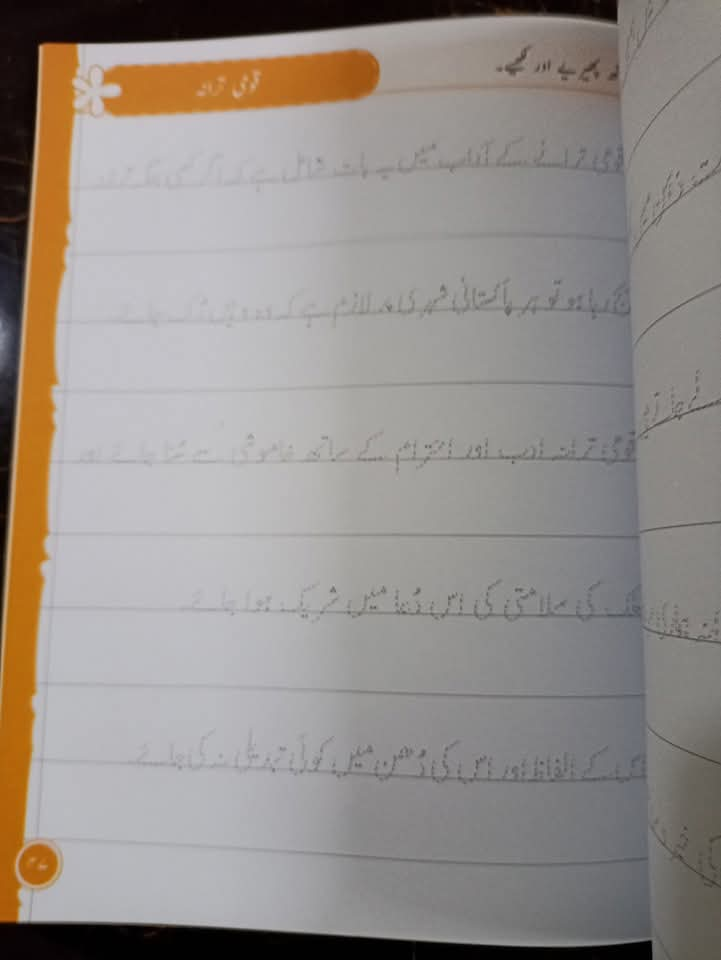 پھیریے اور لکھیے۔
قومی ترانہ
قومی ترانے کے آداب میں یہ بات شامل ہے کہ اگر کسی جگہ ترانہ
بج رہا ہو تو ہر پاکستانی شہری پر لازم ہے کہ وہ وہیں رُک جائے۔
قومی ترانہ ادب اور احترام کے ساتھ خاموشی سے سُنا جائے اور
ملک کی سلامتی کی اس دُعا میں شریک ہوا جائے۔
اس کے الفاظ اور اس کی دُھن میں کوئی تبدیلی نہ کی جائے۔
۴۷